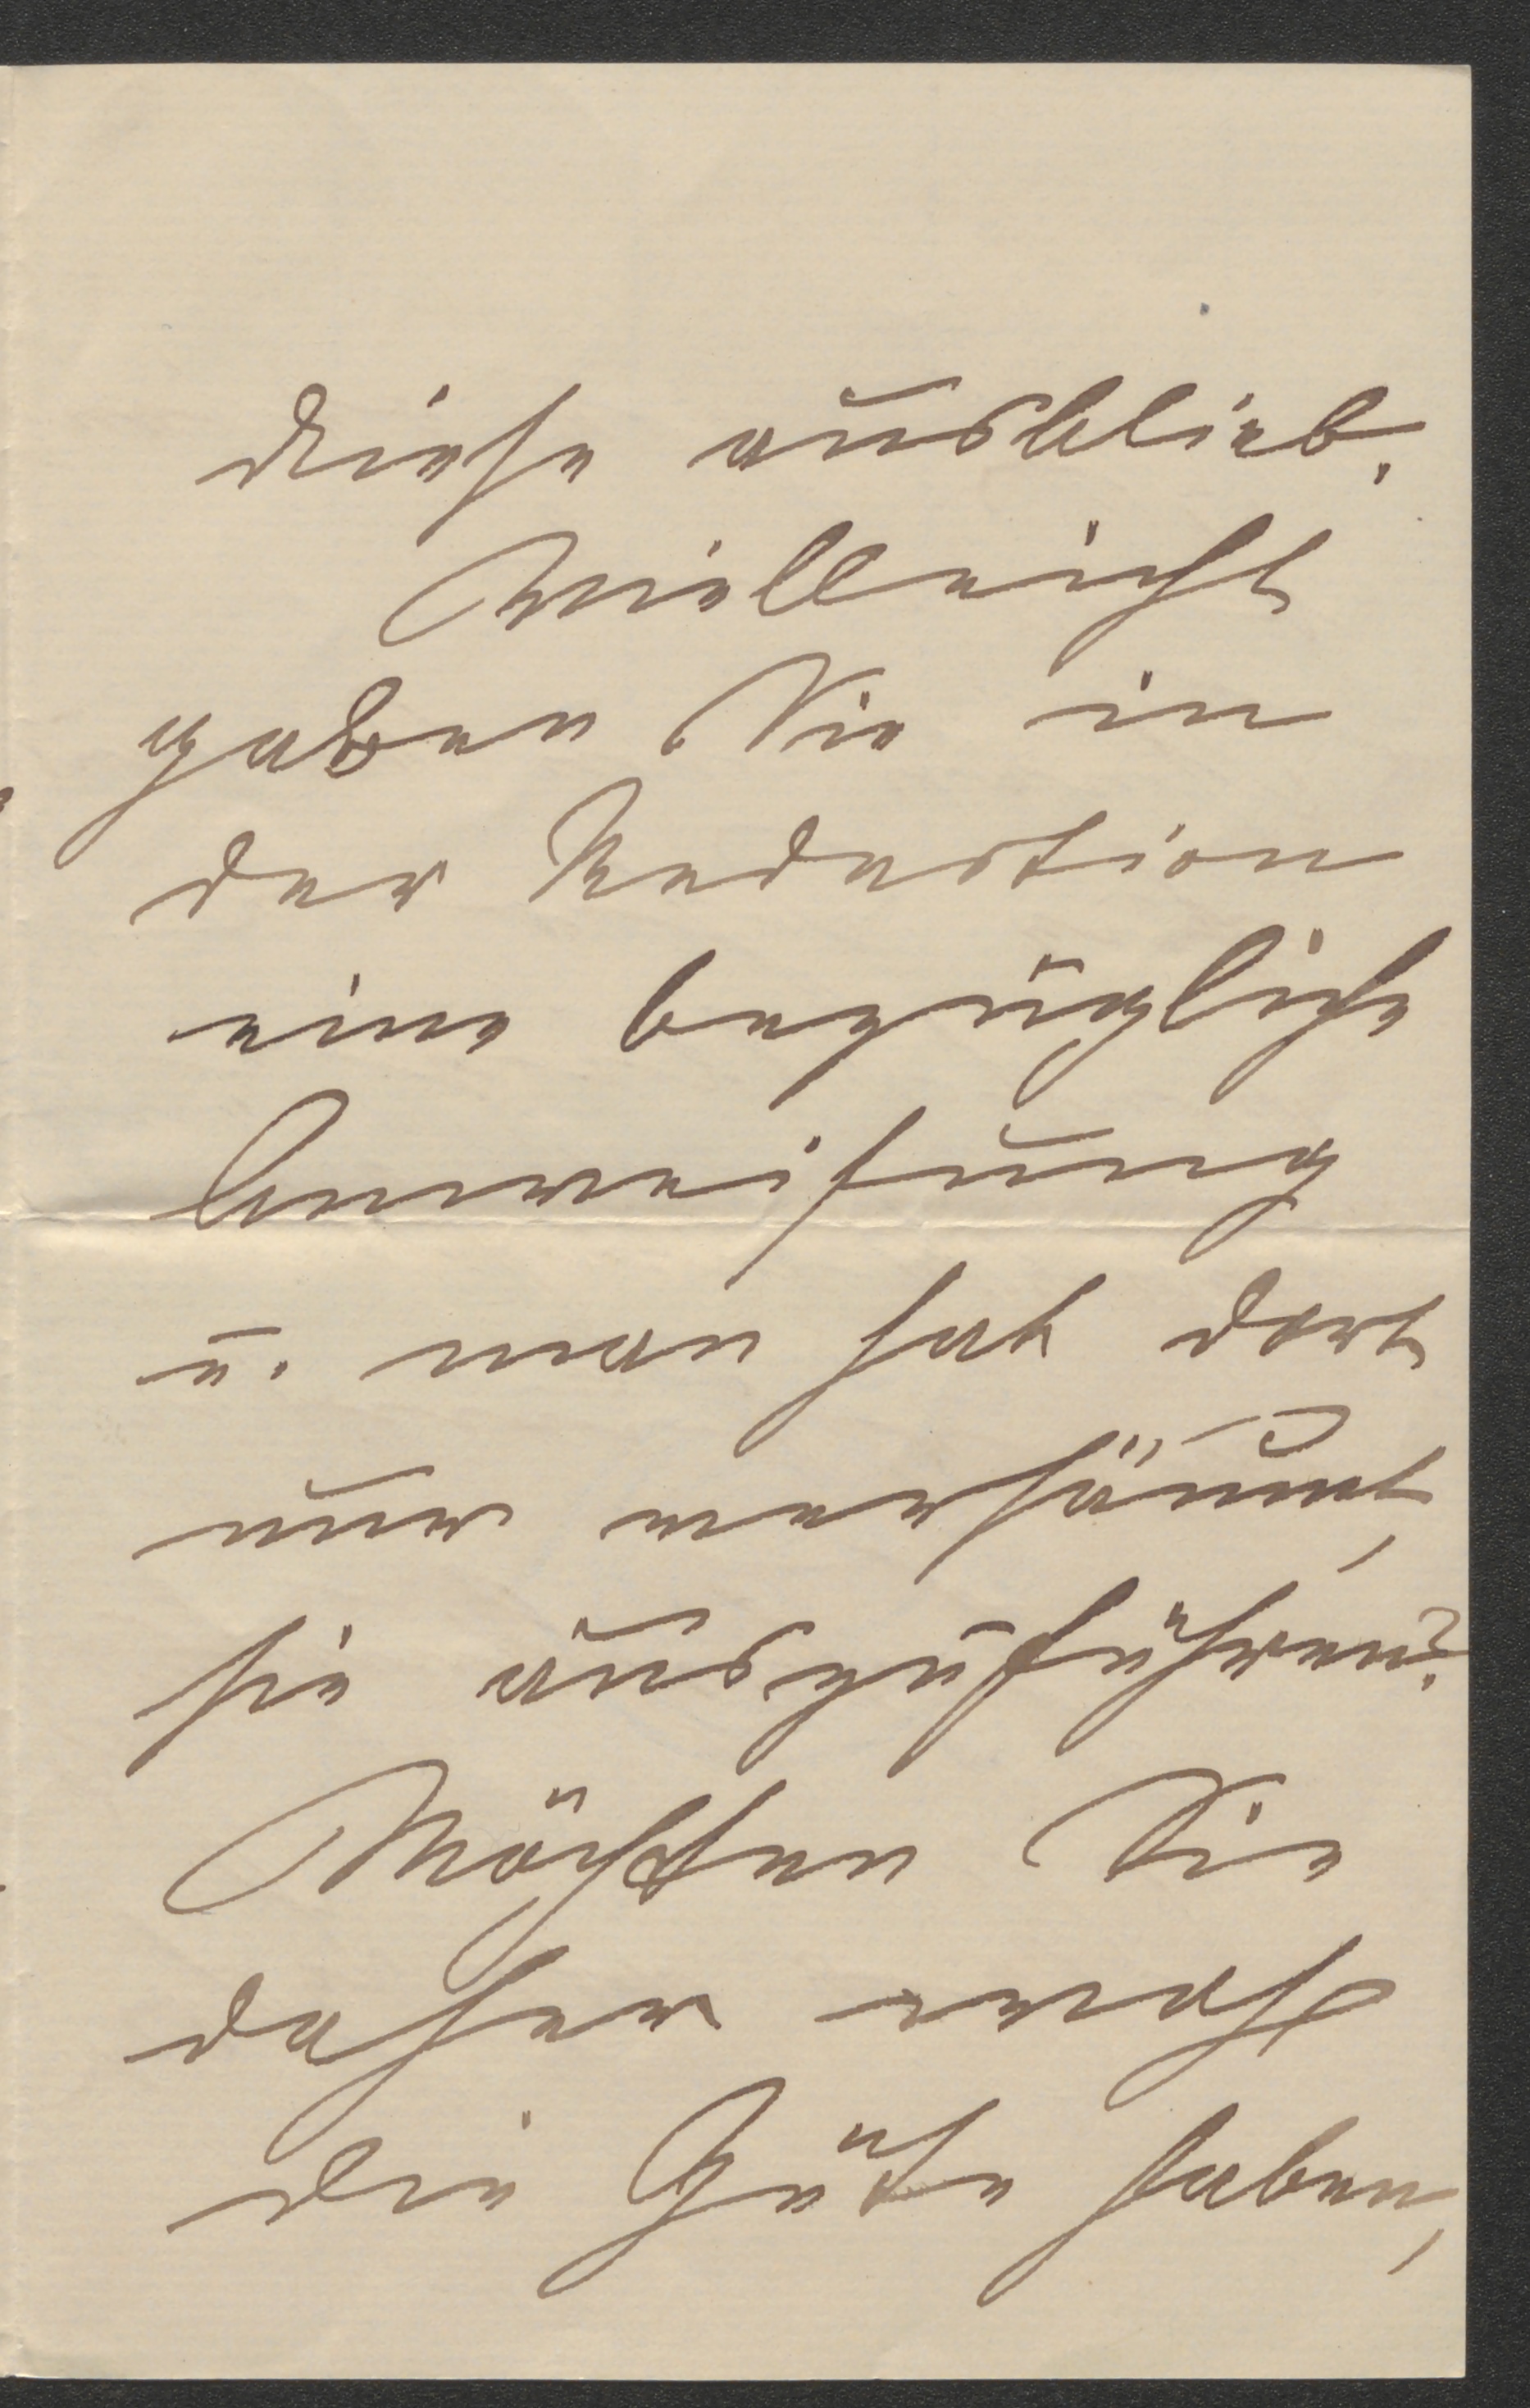 diese ausblieb.
Vielleicht
gaben Sie in
der Redaction
eine bezügliche
Anweisung
u. man hat dort
nur versäumt,
sie auszuführen?
Möchten Sie
daher
die Güte haben,